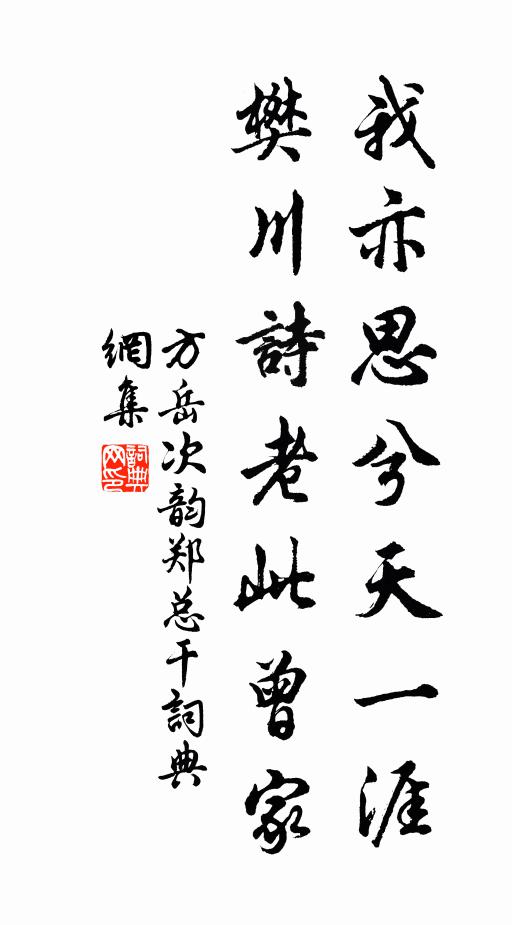 我亦思兮天一涯
樊川詩老此曾家
方岳次韵郑总干詞典
網集
詞典
网印